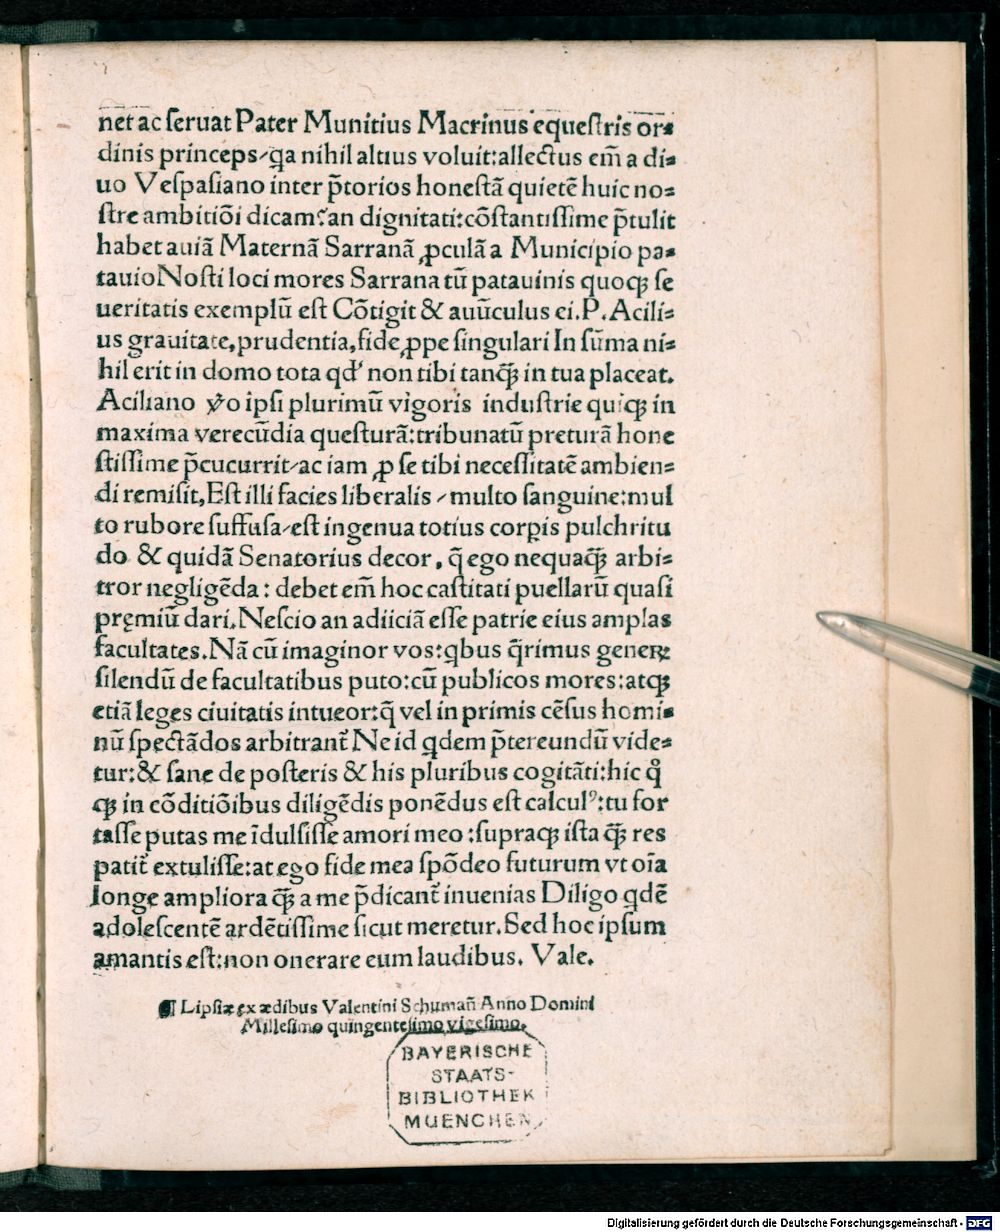 net ac ſeruat Pater Munitius Macrinus equeſtris or⸗
dinis princeps/ꝗa nihil altius voluit:allectus em̄ a di⸗
uo Veſpaſiano inter p̄torios honeſtā quietē huic no⸗
ſtre ambitiōi dicam?an dignitati:cōſtantiſſime p̄tulit
habet auiā Maternā Sarranā ꝓculā a Municipio pa⸗
tauioNoſti loci mores Sarrana tū patauinis quoqꝫ ſe
ueritatis exemplū eſt Cōtigit & auūculus ei.P.Acili⸗
us grauitate,prudentia,fide ꝓpe ſingulari In ſūma ni⸗
hil erit in domo tota qd' non tibi tanqꝫ̄ in tua placeat.
Aciliano v̓o ipſi plurimū vigoris induſtrie quiqꝫ in
maxima verecūdia queſturā:tribunatū preturā hone
ſtiſſime p̄cucurrit/ac iam ꝓ ſe tibi neceſſitatē ambien⸗
di remiſit,Eſt illi facies liberalis / multo ſanguine:mul
to rubore ſuffuſa/eſt ingenua totius corꝑis pulchritu
do & quidā Senatorius decor , q̄ ego nequaqꝫ̄ arbi⸗
tror negligēda : debet em̄ hoc caſtitati puellarū quaſi
pręmiū dari.Neſcio an adiiciā eſſe patrie eius amplas
facultates.Nā cū imaginor vos:ꝗbus q̄rimus generꝝ
ſilendū de facultatibus puto:cū publicos mores:atqꝫ
etiā leges ciuitatis intueor:q̄ vel in primis cēſus homi⸗
nū ſpectādos arbitrant᷑ Ne id ꝗdem p̄tereundū vide⸗
tur:& ſane de poſteris & his pluribus cogitāti:hic qͦ
qꝫ in cōditiōibus diligēdis ponēdus eſt calculꝰ:tu for
taſſe putas me īdulſiſſe amori meo :ſupraqꝫ iſta qꝫ̄ res
patit᷑ extuliſſe:at ego fide mea ſpōdeo futurum vt oīa
longe ampliora qꝫ̄ a me p̄dicant᷑ inuenias Diligo ꝗdē
adoleſcentē ardētiſſime ſicut meretur.Sed hoc ipſum
amantis eſt:non onerare eum laudibus. Vale.
¶ Lipſiæ ex ædibus Valentini Schumañ Anno Domini
Milleſimo quingenteſimo vigeſimo.
BAYERISCHE
STAATS-
BIBLIOTHEK
MUENCHEN
Digitalisierung gefördert durch die Deutsche Forschungsgemeinschaft - DFG